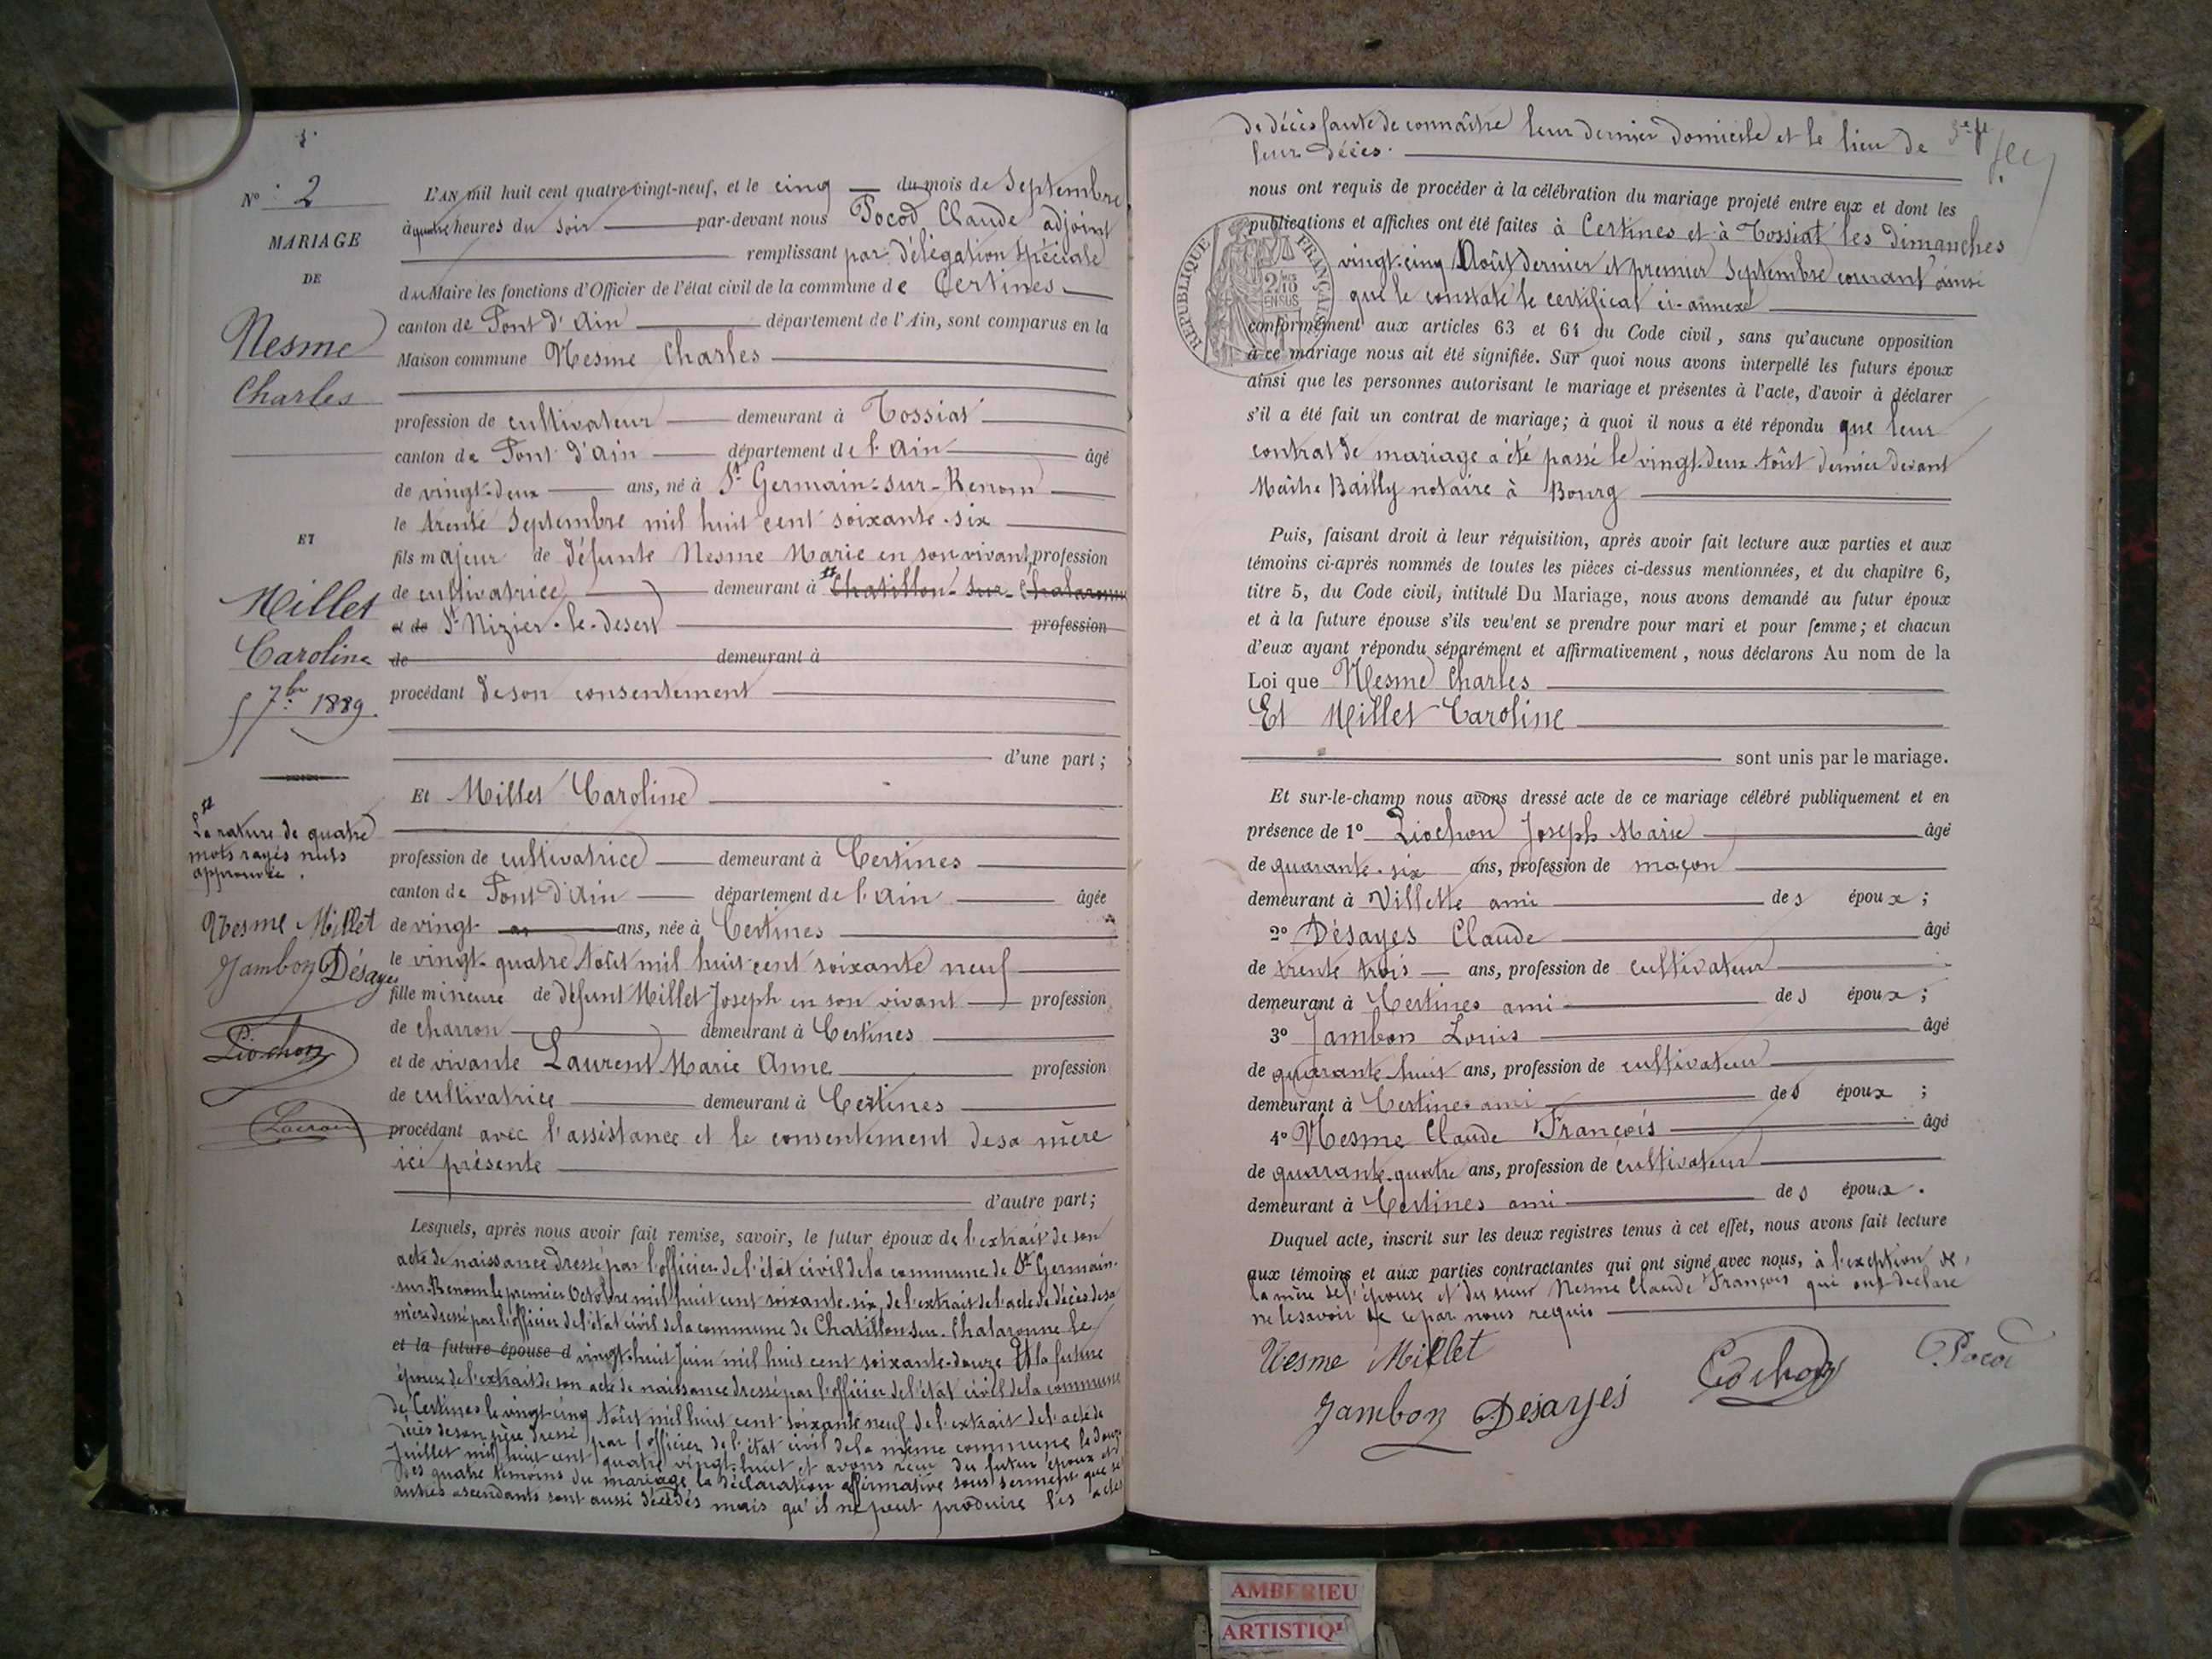 N° 2
MARIAGE
DE
Nesme
Charles
ET
Millet
Caroline
5 7bre 1889.
La rature de quatre
mots rayés nuls
approuvée.
Nesme Millet
Jambon Désayes
Liochon
L'AN mil huit cent quatre-vingt-neuf, et le cinq du mois de Septembre
à quatre heures du soir par-devant nous Pocod Claude adjoint
remplissant par délégation spéciale
du Maire les fonctions d'Officier de l'état civil de la commune de Certines
canton de Pont d'Ain département de l'Ain, sont comparus en la
Maison commune Nesme Charles
profession de cultivateur demeurant à Tossiat
canton de Pont d'Ain département de l'Ain âgé
de vingt-deux ans, né à St Germain-sur-Renom
le trente Septembre mil huit cent soixante-six
fils majeur de défunte Nesme Marie en son vivant, profession
de cultivatrice demeurant à Chatillon-sur-Chalaronne
et de St Nizier-le-desert profession
de demeurant à
procédant de son consentement
d'une part;
Et Millet Caroline
profession de cultivatrice demeurant à Certines
canton de Pont d'Ain département de l'Ain âgée
de vingt ans, née à Certines
le vingt-quatre Août mil huit cent soixante neuf
fille mineure de défunt Millet Joseph en son vivant profession
de charron demeurant à Certines
et de vivante Laurent Marie Anne profession
de cultivatrice demeurant à Certines
procédant avec l'assistance et le consentement de sa mère
ici présente
d'autre part;
Lesquels, après nous avoir fait remise, savoir, le futur époux de l'extrait de son
acte de naissance dressé par l'officier de l'état civil de la commune de St Germain-
sur-Renom le premier Octobre mil huit cent soixante-six, de l'extrait de l'acte de décès de sa
mère dressé par l'officier de l'état civil de la commune de Chatillon sur-Chalaronne le
et la future épouse d vingt-huit Juin mil huit cent soixante-douze Et la future
épouse de l'extrait de son acte de naissance dressé par l'officier de l'état civil de la commune
de Certines le vingt-cinq Août mil huit cent soixante neuf de l'extrait de l'acte de
décès de son père dressé par l'officier de l'état civil de la même commune le douze
Juillet mil huit cent quatre vingt-huit et avons reçu du futur époux et
des quatre témoins du mariage, la déclaration affirmative sous serment que ses
autres ascendants sont aussi décédés mais qu'il ne peut produire les actes
de décès faute de connaître leur dernier domicile et le lieu de
leur décès.
nous ont requis de procéder à la célébration du mariage projeté entre eux et dont les
publications et affiches ont été faites à Certines et à Tossiat les dimanches
vingt-cinq Août dernier et premier Septembre courant ainsi
que le constate le certificat ci-annexé
RÉPUBLIQUE FRANÇAISE
conformément aux articles 63 et 64 du Code civil, sans qu'aucune opposition
à ce mariage nous ait été signifiée. Sur quoi nous avons interpellé les futurs époux
ainsi que les personnes autorisant le mariage et présentes à l'acte, d'avoir à déclarer
s'il a été fait un contrat de mariage; à quoi il nous a été répondu que leur
contrat de mariage a été passé le vingt-deux Août dernier devant
Maître Bailly notaire à Bourg
Puis, faisant droit à leur réquisition, après avoir fait lecture aux parties et aux
témoins ci-après nommés de toutes les pièces ci-dessus mentionnées, et du chapitre 6,
titre 5, du Code civil, intitulé Du Mariage, nous avons demandé au futur époux
et à la future épouse s'ils veulent se prendre pour mari et pour femme; et chacun
d'eux ayant répondu séparément et affirmativement, nous déclarons Au nom de la
Loi que Nesme Charles
Et Millet Caroline
sont unis par le mariage.
Et sur-le-champ nous avons dressé acte de ce mariage célébré publiquement et en
présence de 1° Liochon Joseph Marie âgé
de quarante-six ans, profession de maçon
demeurant à Villette ami des époux;
2° Désayes Claude âgé
de trente trois ans, profession de cultivateur
demeurant à Certines ami des époux;
3° Jambon Louis âgé
de quarante-huit ans, profession de cultivateur
demeurant à Certines ami des époux;
4° Nesme Claude François âgé
de quarante-quatre ans, profession de cultivateur
demeurant à Certines ami des époux.
Duquel acte, inscrit sur les deux registres tenus à cet effet, nous avons fait lecture
aux témoins et aux parties contractantes qui ont signé avec nous, à l'exception de
la mère de l'épouse et du sieur Nesme Claude François qui ont déclaré
ne le savoir de ce par nous requis
Nesme Millet
Liochon
Pocod
Jambon Desayes
AMBERIEU
ARTISTIQ